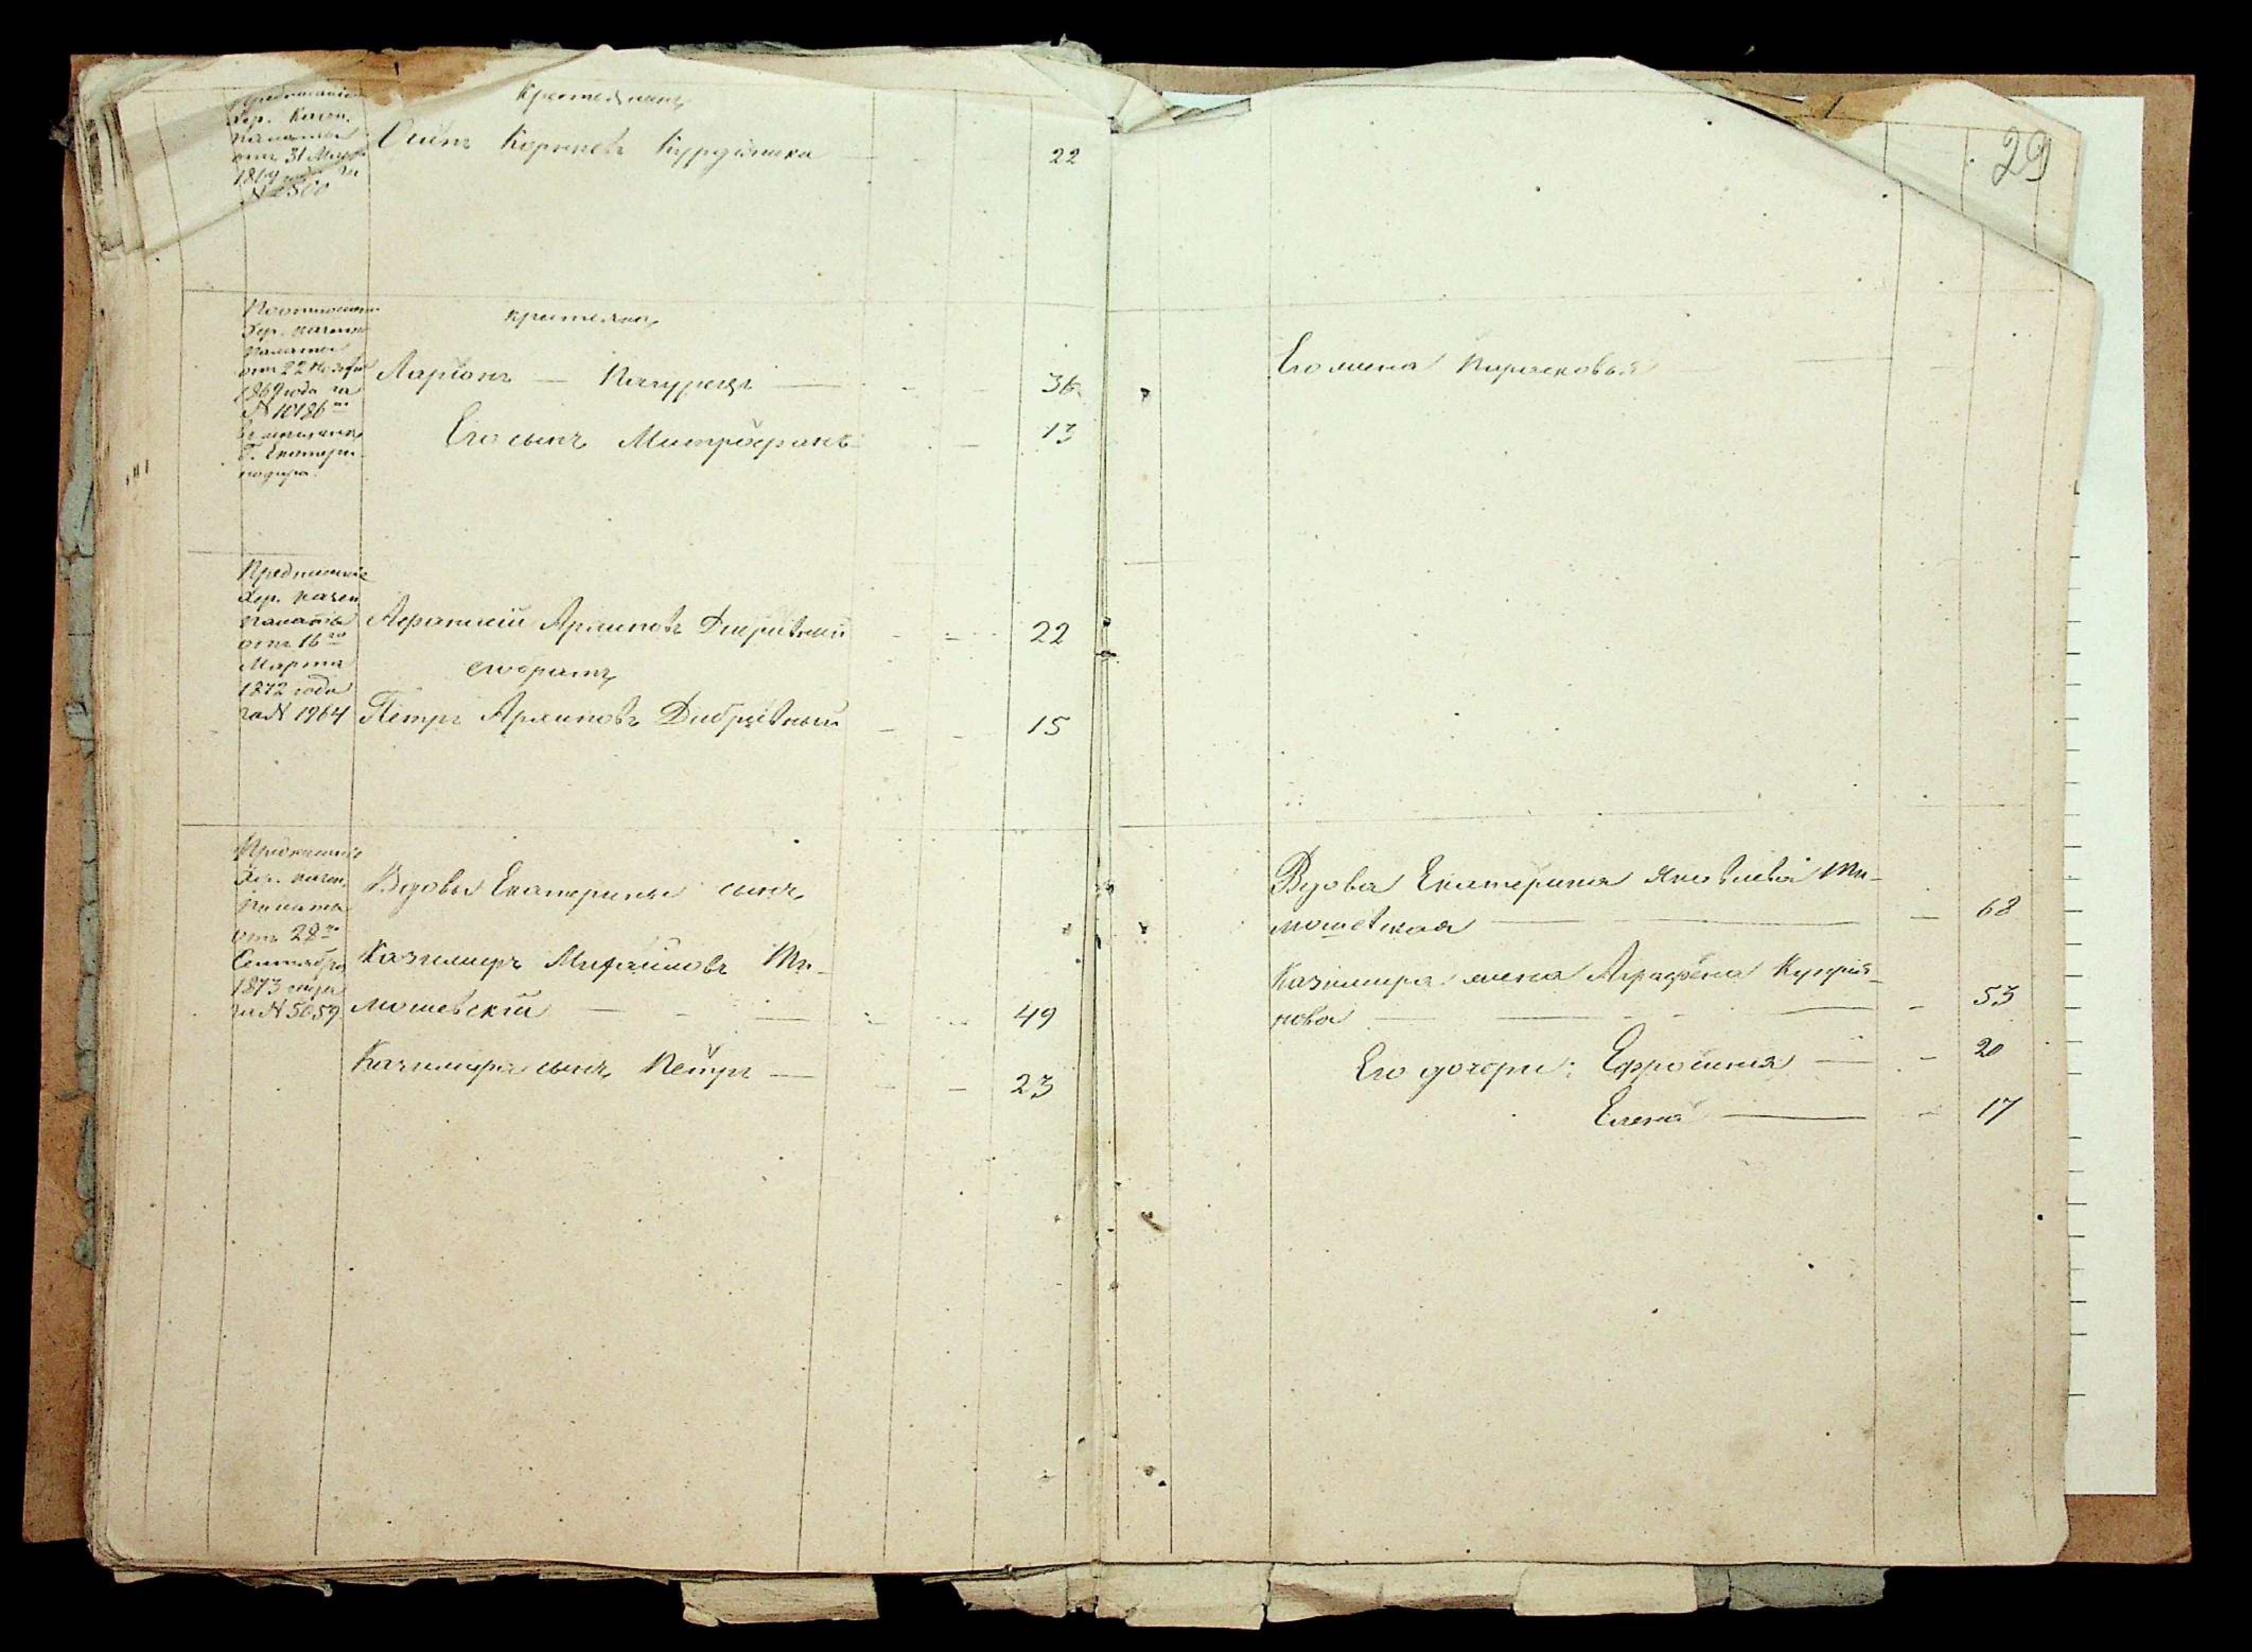 Предписаніе
Хер. Казен.
палаты
отъ 31 Мая
1869 года за
№ 2500
Крестьянинъ
Осипъ Корнѣевъ
22
29
Хер. казенной
палаты
отъ 22 Ноября
1869 года за
№ 10186
въ мѣщане
г. Екатери-
нодара.
крестьянинъ
Ларіонъ — Кацурецъ —
36
Его сынъ Митрофанъ
13
Его жена Парасковья
Предписаніе
Хер. казен.
палаты
отъ 16го
Марта
1872 года
за № 1964
Афанасій Архиповъ
22
его братъ
Петръ Архиповъ
15
Предписаніе
Хер. казен.
палаты
отъ 28го
Сентября
1873 года
за № 5059
Вдовы Екатерины сынъ,
Казимиръ
мошевскій
49
Казимира сынъ Петръ —
23
Вдова Екатерина Яковлева
мошевская
68
Казимира жена Аграфена Купрія-
нова
53
Его дочери: Ефросинія
20
Елена
17